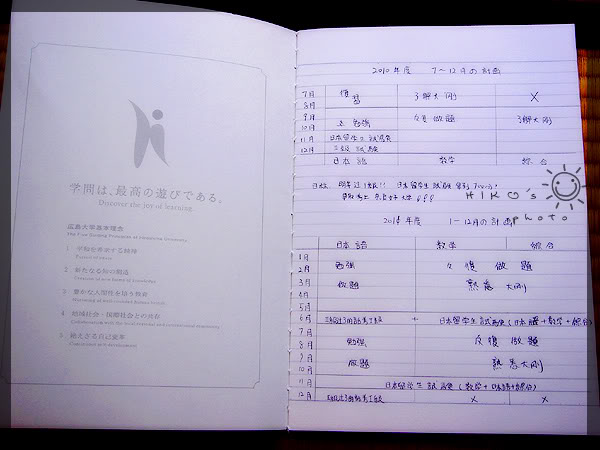 学問は、最高の遊びである。
Discover the joy of learning.
広島大学基本理念
The Five Guiding Principles of Hiroshima University
1 平和を希求する精神
Pursuit of peace
2 新たなる知の創造
Creation of new forms of knowledge
3 豊かな人間性を培う教育
Nurturing of well-rounded human beings
4 地域社会・国際社会との共存
Collaboration with the local, regional and international community
5 絶えざる自己変革
Continuous self-development
2010年度 7~12月の計画
7月 復習 了解大剛 X
8月
9月 勉強 反復做題 了解大剛
10月
11月 日本留学生試験
12月
日本語 数学 綜合
HIKO's
photo
1~12月の計画
日本語 数学 綜合
1月
2月 勉強 反復做題
3月 做題 熟悉大剛
4月
5月
6月 + 日本留学生試験(日本語+数学+綜合)
7月
8月 勉強 反復做題
9月
10月 做題 熟悉大剛
11月 日本留学生試験(数学+日本語+綜合)
12月 X X